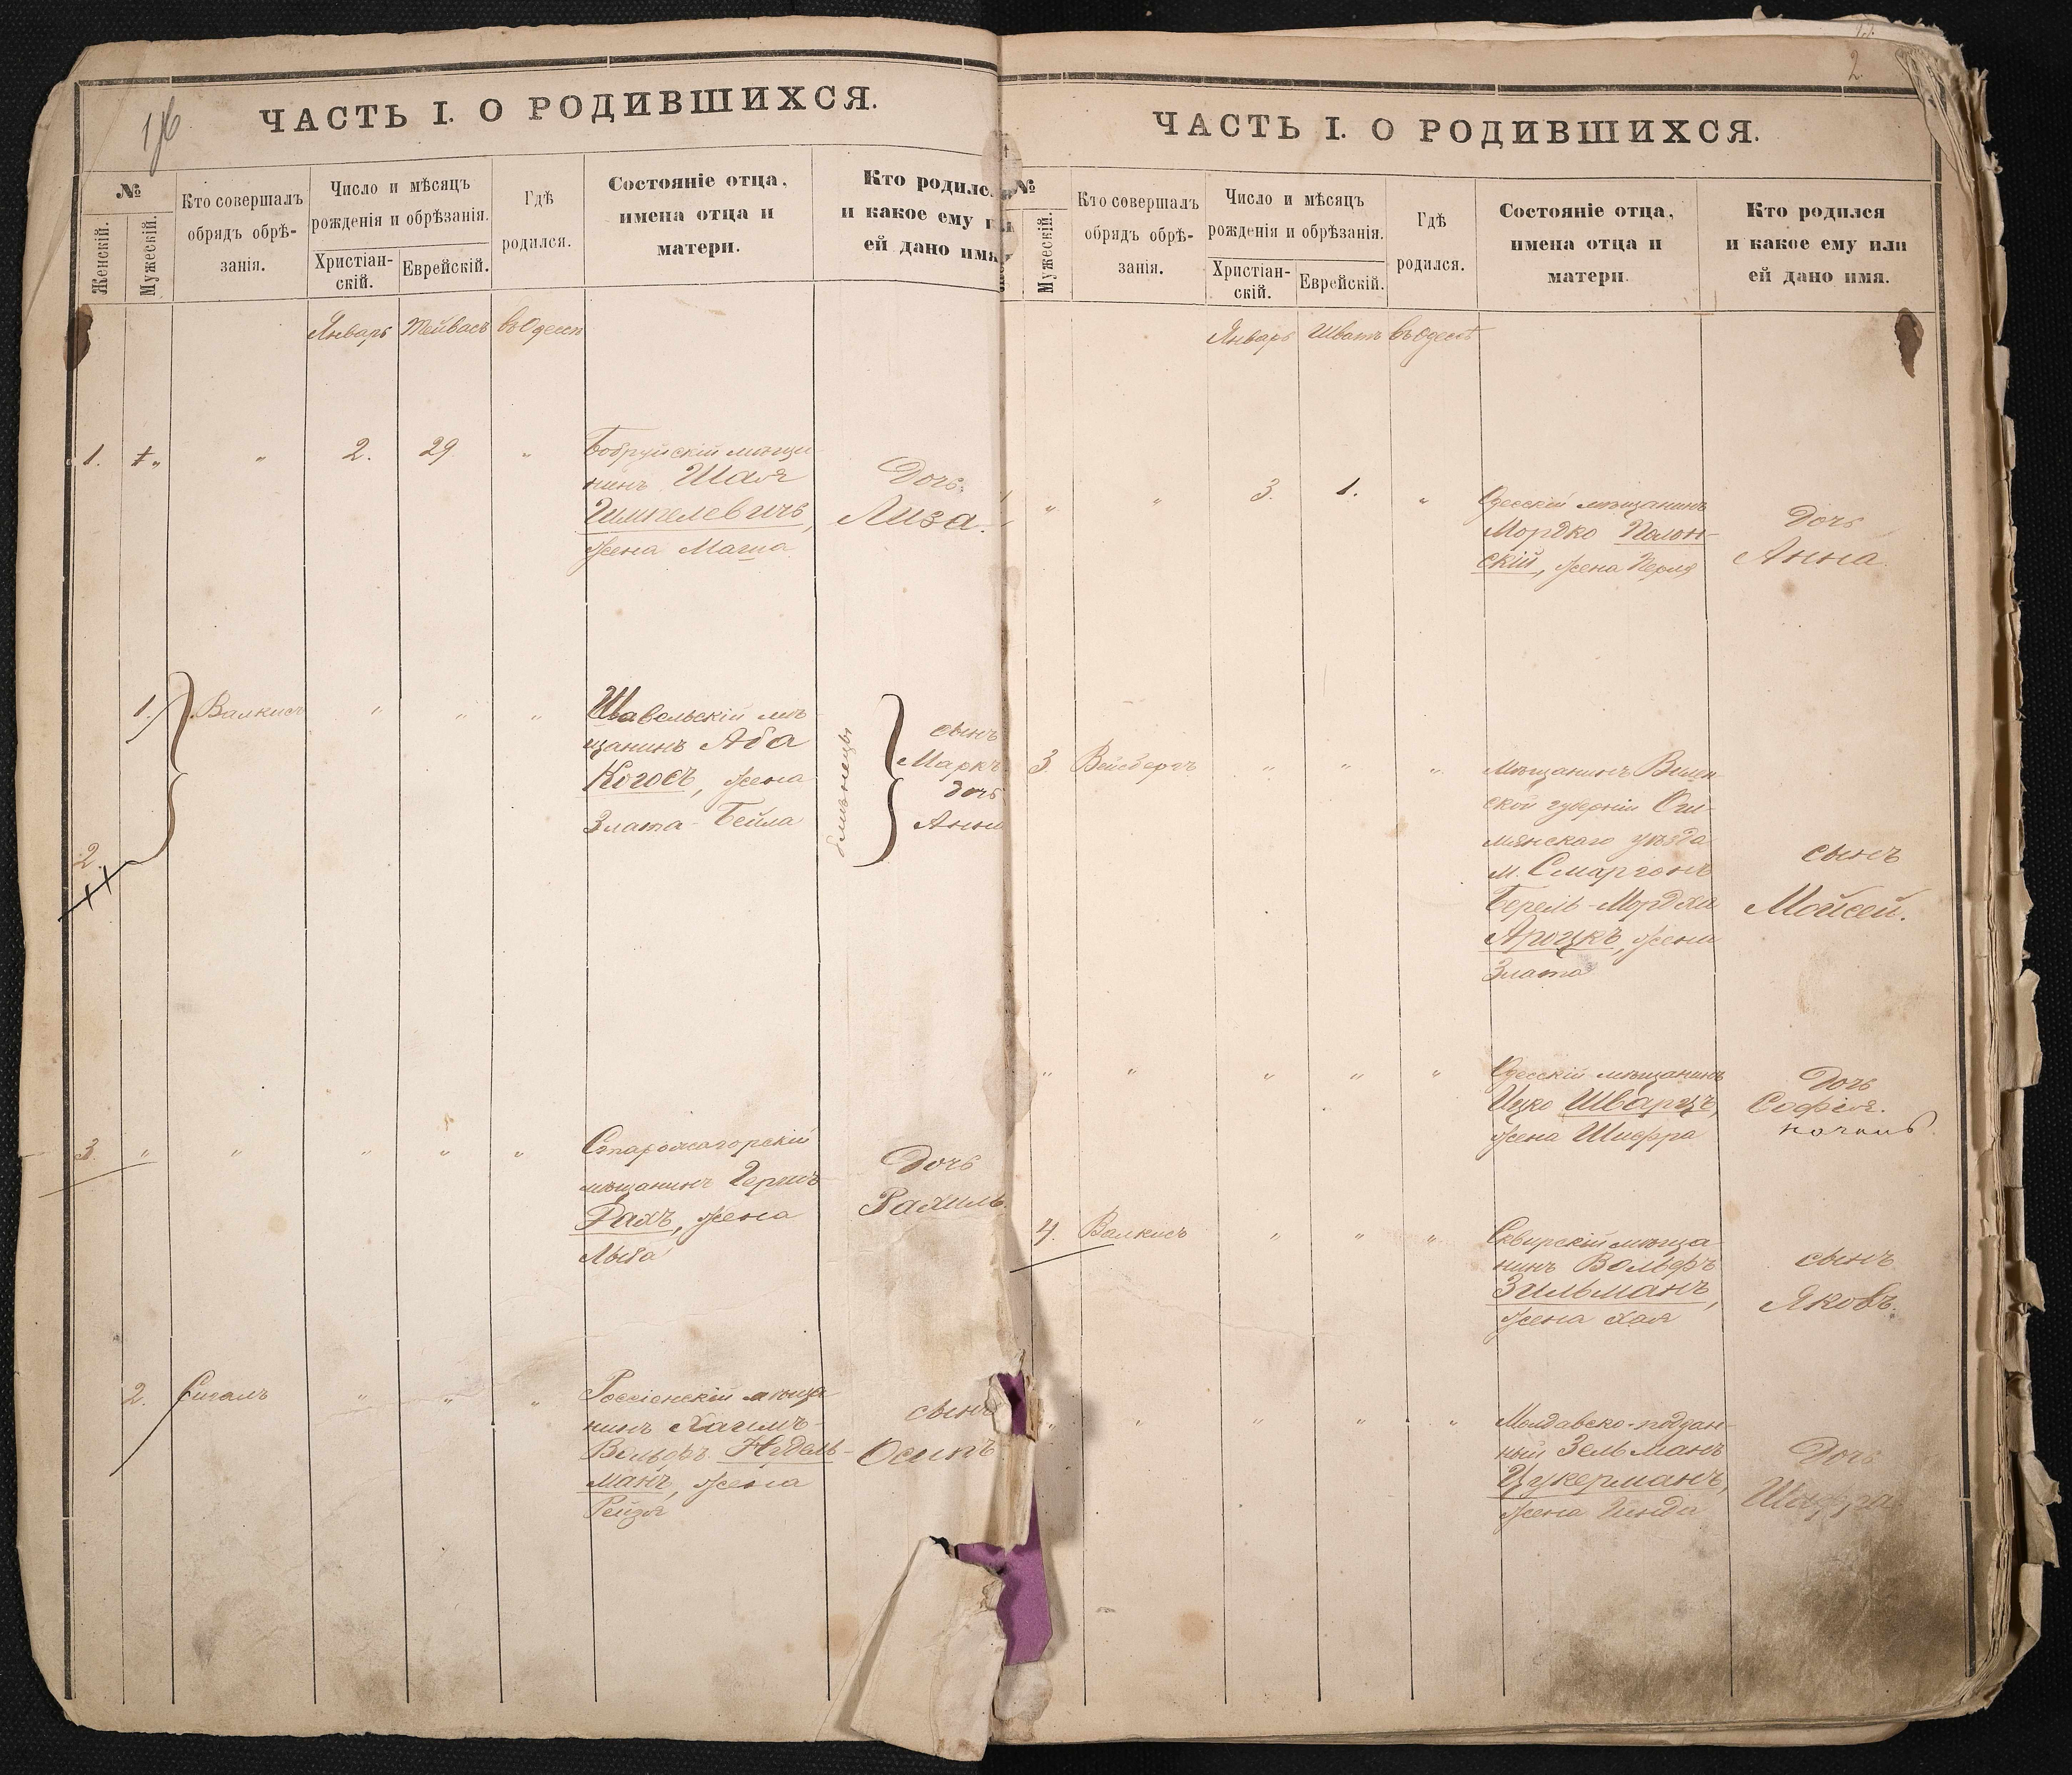 1/6
ЧАСТЬ I. О РОДИВШИХСЯ.
№
Женскій.
Мужескій.
Кто совершалъ
обрядъ обрѣ-
занія.
Число и мѣсяцъ
рожденія и обрѣзанія.
Христіан-
скій.
Еврейскій.
Гдѣ
родился.
Состояніе отца,
имена отца и
матери.
Кто родилс
и какое ему и
ей дано имя
Январь Тейвасъ въ Одессѣ
1. „ „ 2. 29 „
Бобруйскій мѣща
нинъ Шая
Гимпелевичъ,
жена Маша
Дочь
Лиза.
1. Валкисъ „ „ „
Шавельскій мѣ
щанинъ Аба
Когосъ, жена
Злата-Бейла
близнецы
сынъ
Маркъ
дочь
Анна
2.
3. „ „ „ „ „
Старожагорскій
мѣщанинъ Гершъ
Рахъ, жена
Лыба
Дочь
Рахиль.
2. Сигалъ „ „ „
Россіенскій мѣща
нинъ Хаимъ-
Вольфъ Нудель-
манъ, жена
Рейзя
сынъ
Осипъ
2.
ЧАСТЬ I. О РОДИВШИХСЯ.
№
Мужескій.
Кто совершалъ
обрядъ обрѣ-
занія.
Число и мѣсяцъ
рожденія и обрѣзанія.
Христіан-
скій.
Еврейскій.
Гдѣ
родился.
Состояніе отца,
имена отца и
матери.
Кто родился
и какое ему или
ей дано имя.
Январь Шватъ въ Одессѣ
„ „ 3. 1. „
Одесскій мѣщанинъ
Мордко Полон-
скій, жена Перля
Дочь
Анна
3. Вейсбергъ „ „ „
Мѣщанинъ Вилен-
ской губерніи Ош-
мянскаго уѣзда
м. Сморгонъ
Берель-Мордха
Ароцкъ, жена
Злата
сынъ
Мойсей.
„ „ „ „ „
Одесскій мѣщанинъ
Ицко Шварцъ,
жена Шифра
Дочь
Софія.
4. Валкисъ „ „ „
Сквирскій мѣща
нинъ Вольфъ
Зильманъ,
жена Хая
сынъ
Яковъ.
„ „ „ „ „
Молдавско-поддан-
ный Зельманъ
Цукерманъ,
жена Гинда
Дочь
Шифра